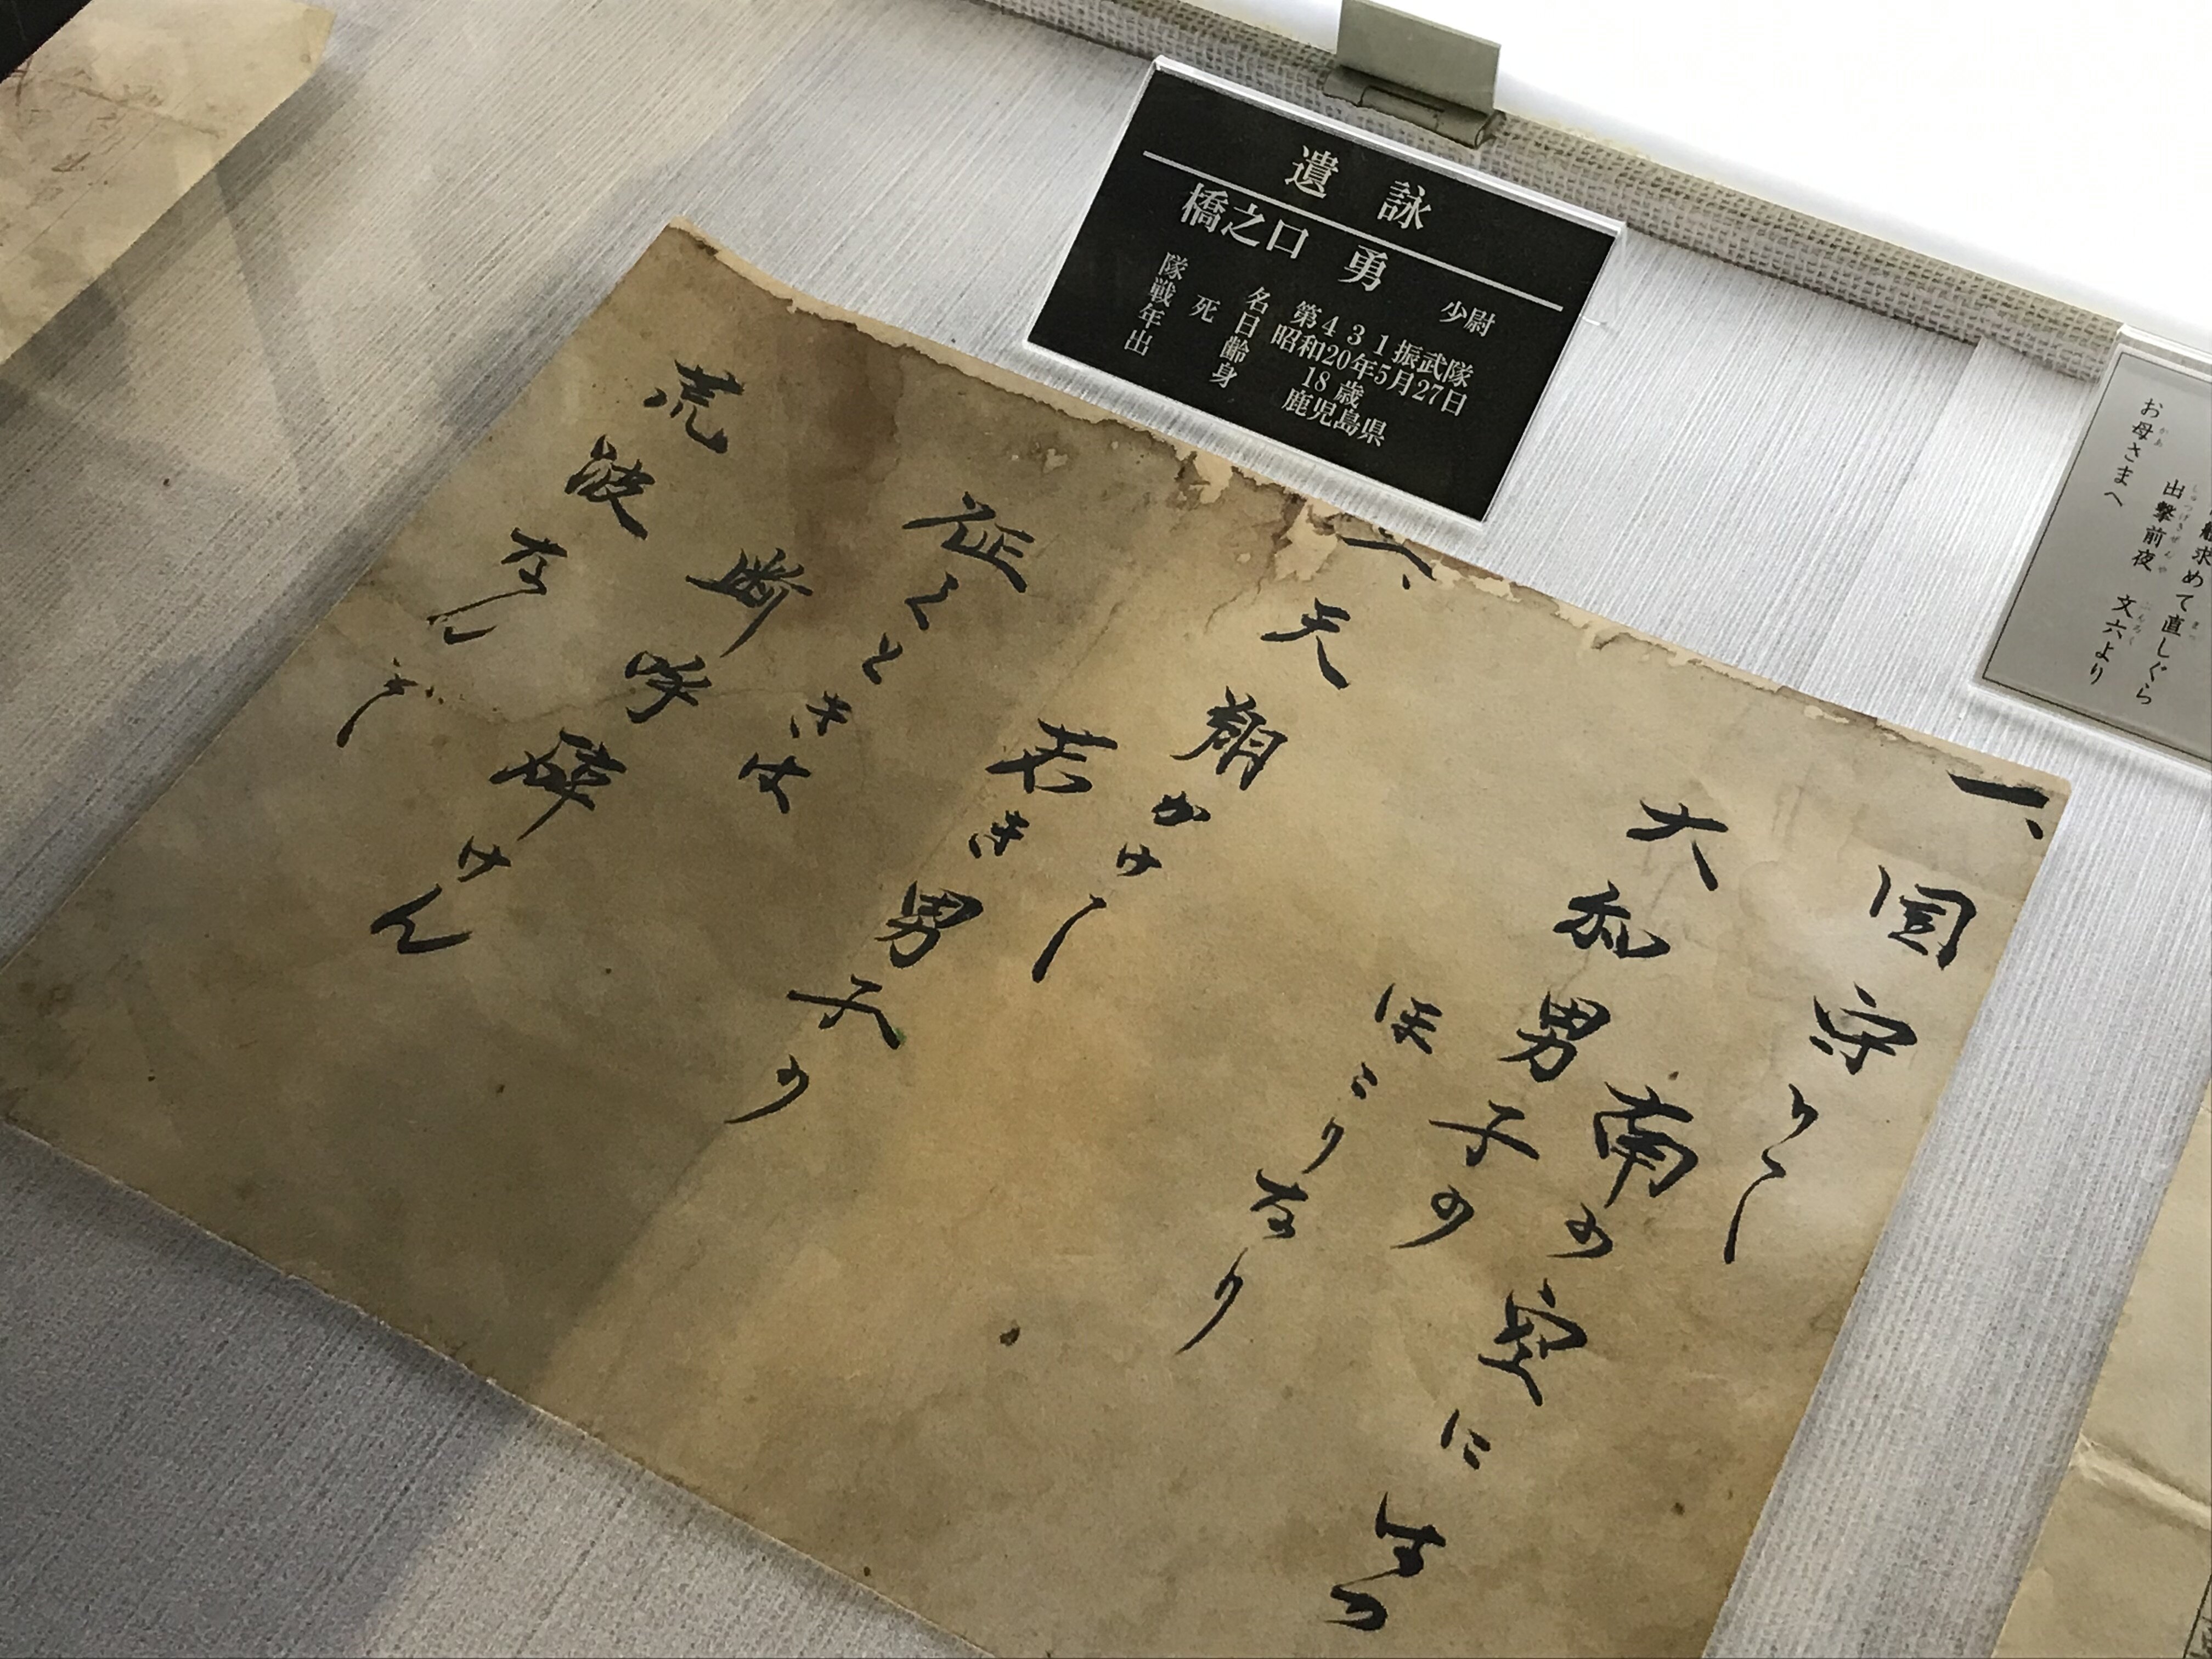 遺 詠
橋之口 勇 少尉
隊名 第431振武隊
戦死日 昭和20年5月27日
年齢 18歳
出身 鹿児島県
一、国守りてし
南の空に
大和男子の
ほこりなり
一、天翔かけし
若き男子の
征くときは
断呼砕けん
荒波なんぞ
艦求めて直しぐら
出撃前夜 文六より
お母さまへ